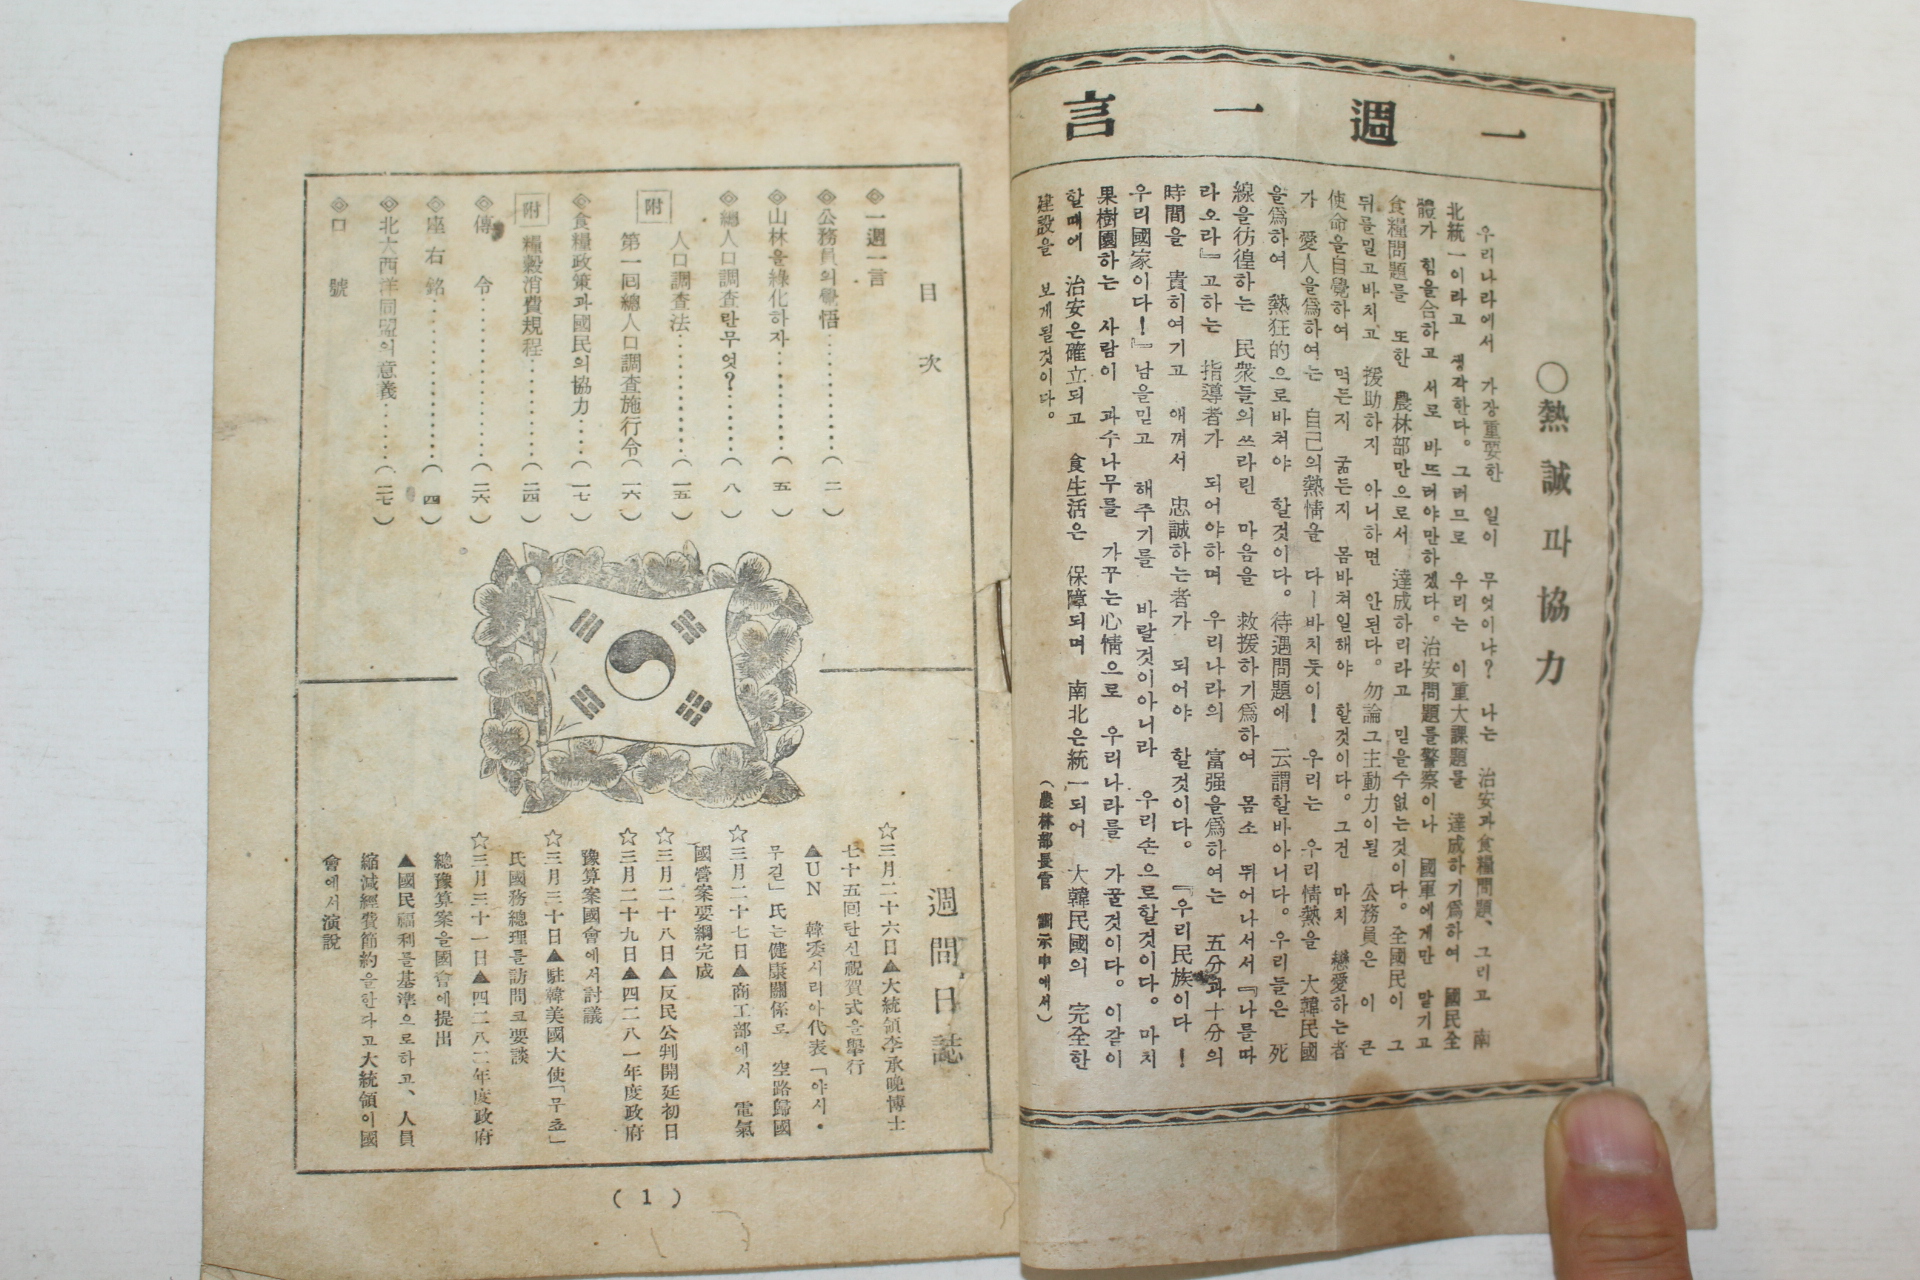 一週一言
○熱誠과協力
우리나라에서 가장重要한 일이 무엇이냐? 나는 治安과食糧問題、그리고 南
北統一이라고 생각한다。그러므로 우리는 이重大課題를 達成하기爲하여 國民全
體가 힘을合하고 서로 바뜨러야만하겠다。治安問題를警察이나 國軍에게만 맡기고
食糧問題를 또한 農林部만으로서 達成하리라고 믿을수없는것이다。全國民이 그
뒤를밀고바치고 援助하지 아니하면 안된다。勿論그主動力이될 公務員은 이 큰
使命을自覺하여 먹든지 굶든지 몸바쳐일해야 할것이다。그건 마치 戀愛하는者
가 愛人을爲하여는 自己의熱情을 다ㅡ바치듯이! 우리는 우리情熱을 大韓民國
을爲하여 熱狂的으로바쳐야 할것이다。待遇問題에 云謂할바아니다。우리들은 死
線을彷徨하는 民衆들의쓰라린 마음을 救援하기爲하여 몸소 뛰어나서서『나를따
라오라』고하는 指導者가 되어야하며 우리나라의 富强을爲하여는 五分과十分의
時間을 貴히여기고 애껴서 忠誠하는者가 되어야 할것이다。『우리民族이다!
우리國家이다!』남을믿고 해주기를 바랄것이아니라 우리손으로할것이다。마치
果樹園하는 사람이 과수나무를 가꾸는心情으로 우리나라를 가꿀것이다。이같이
할때에 治安은確立되고 食生活은 保障되며 南北은統一되어 大韓民國의 完全한
建設을 보게될것이다。
(農林部長官 劃示中에서)
目次
◈一週一言
◈公務員의覺悟………(二)
◈山林을綠化하자………(五)
◈總人口調査란무엇?………(八)
附 人口調査法………(一五)
第一回總人口調査施行令(一六)
◈食糧政策과國民의協力……(一七)
附 糧穀消費規程………(二四)
◈傳令………(二六)
◈座右銘………(四)
◈北大西洋同盟의意義……(二七)
◈口號
週間日誌
☆三月二十六日▲大統領李承晩博士
七十五回탄신祝賀式을擧行
▲UN 韓委시리아代表「야시・
무길」氏는健康關係로 空路歸國
☆三月二十七日▲商工部에서 電氣
國營案要綱完成
☆三月二十八日▲反民公判開廷初日
☆三月二十九日▲四二八一年度政府
豫算案國會에서討議
☆三月三十日▲駐韓美國大使「무쵸」
氏國務總理를訪問코要談
☆三月三十一日▲四二八二年度政府
總豫算案을國會에提出
▲國民福利를基準으로하고、人員
縮減經費節約을한다고大統領이國
會에서演說
(1)